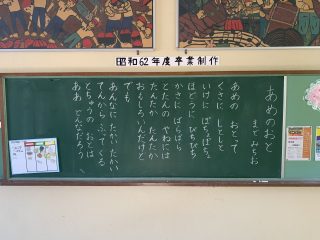 昭和62年度卒業制作
あめのおと
まど みちお
あめの おと って
くさに しとしと
いけに ぽちょぽちょ
ほどうに ぴちぴち
かさに ぱらぱら
とたんの やねには
たんたか たんたか
おもしろいんだけど
でも
あんなに たかい たかい
てんから ふってくる
とちゅうの おとは
ああ どんなだろう